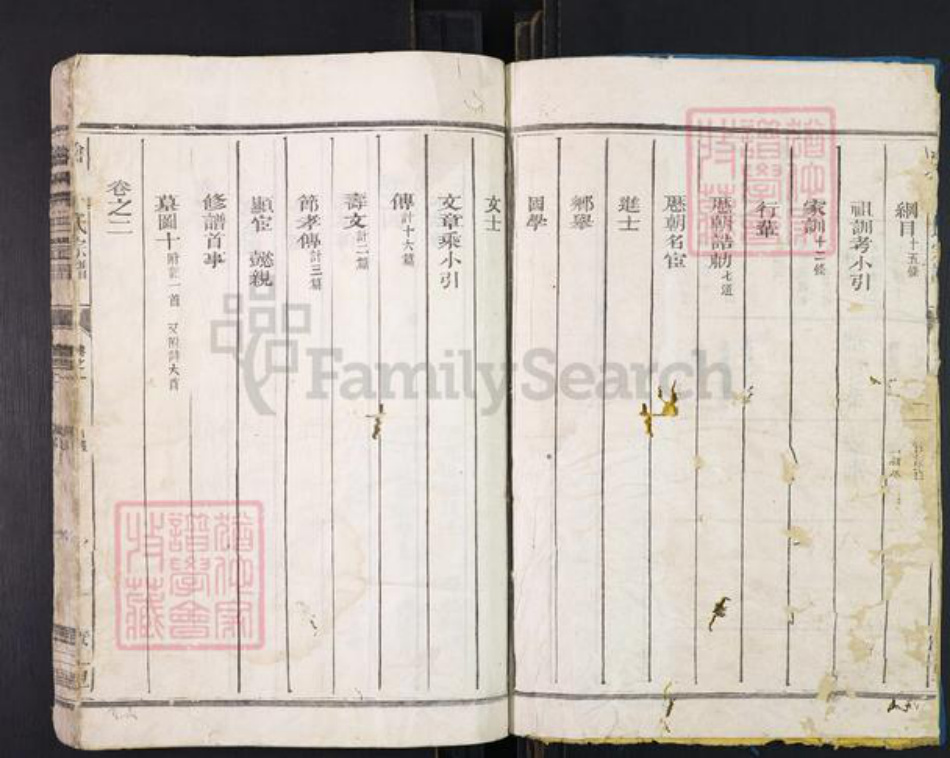 綱目十五條
祖訓考小引
家訓十二條
行輩
歷朝誥勅七道
歷朝名宦
進士
鄉舉
國學
文士
文章乘小引
傳計十六篇
壽文計二篇
節孝傳計三篇
顯宦 懿親
修譜首事
墓圖十附記一首 又附詩六首
卷之二
氏宗譜
卷之一
FamilySearch